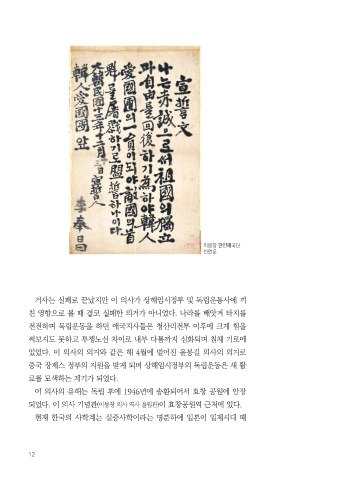 宣誓文
나는赤誠으로써祖國의獨立
과自由를回復하기爲하야韓人
愛國團의一員이되야敵國의首
魁를屠戮하기로盟誓하나이다
大韓民國十三年十二月十三日 宣誓人
李奉昌
韓人愛國團 앞
이봉창 한인애국단
선언문
거사는 실패로 끝났지만 이 의사가 상해임시정부 및 독립운동사에 끼
친 영향으로 볼 때 결코 실패한 의거가 아니었다. 나라를 빼앗겨 타지를
전전하며 독립운동을 하던 애국지사들은 청산리전투 이후에 크게 힘을
써보지도 못하고 투쟁노선 차이로 내부 다툼까지 심화되며 침체 기로에
있었다. 이 의사의 의거와 같은 해 4월에 벌어진 윤봉길 의사의 의거로
중국 장제스 정부의 지원을 받게 되며 상해임시정부의 독립운동은 새 활
로를 모색하는 계기가 되었다.
이 의사의 유해는 독립 후에 1946년에 송환되어서 효창 공원에 안장
되었다. 이 의사 기념관(이봉창 의사 역사 울림관)이 효창공원역 근처에 있다.
현재 한국의 사학계는 실증사학이라는 명분하에 일본이 일제시대 때
12